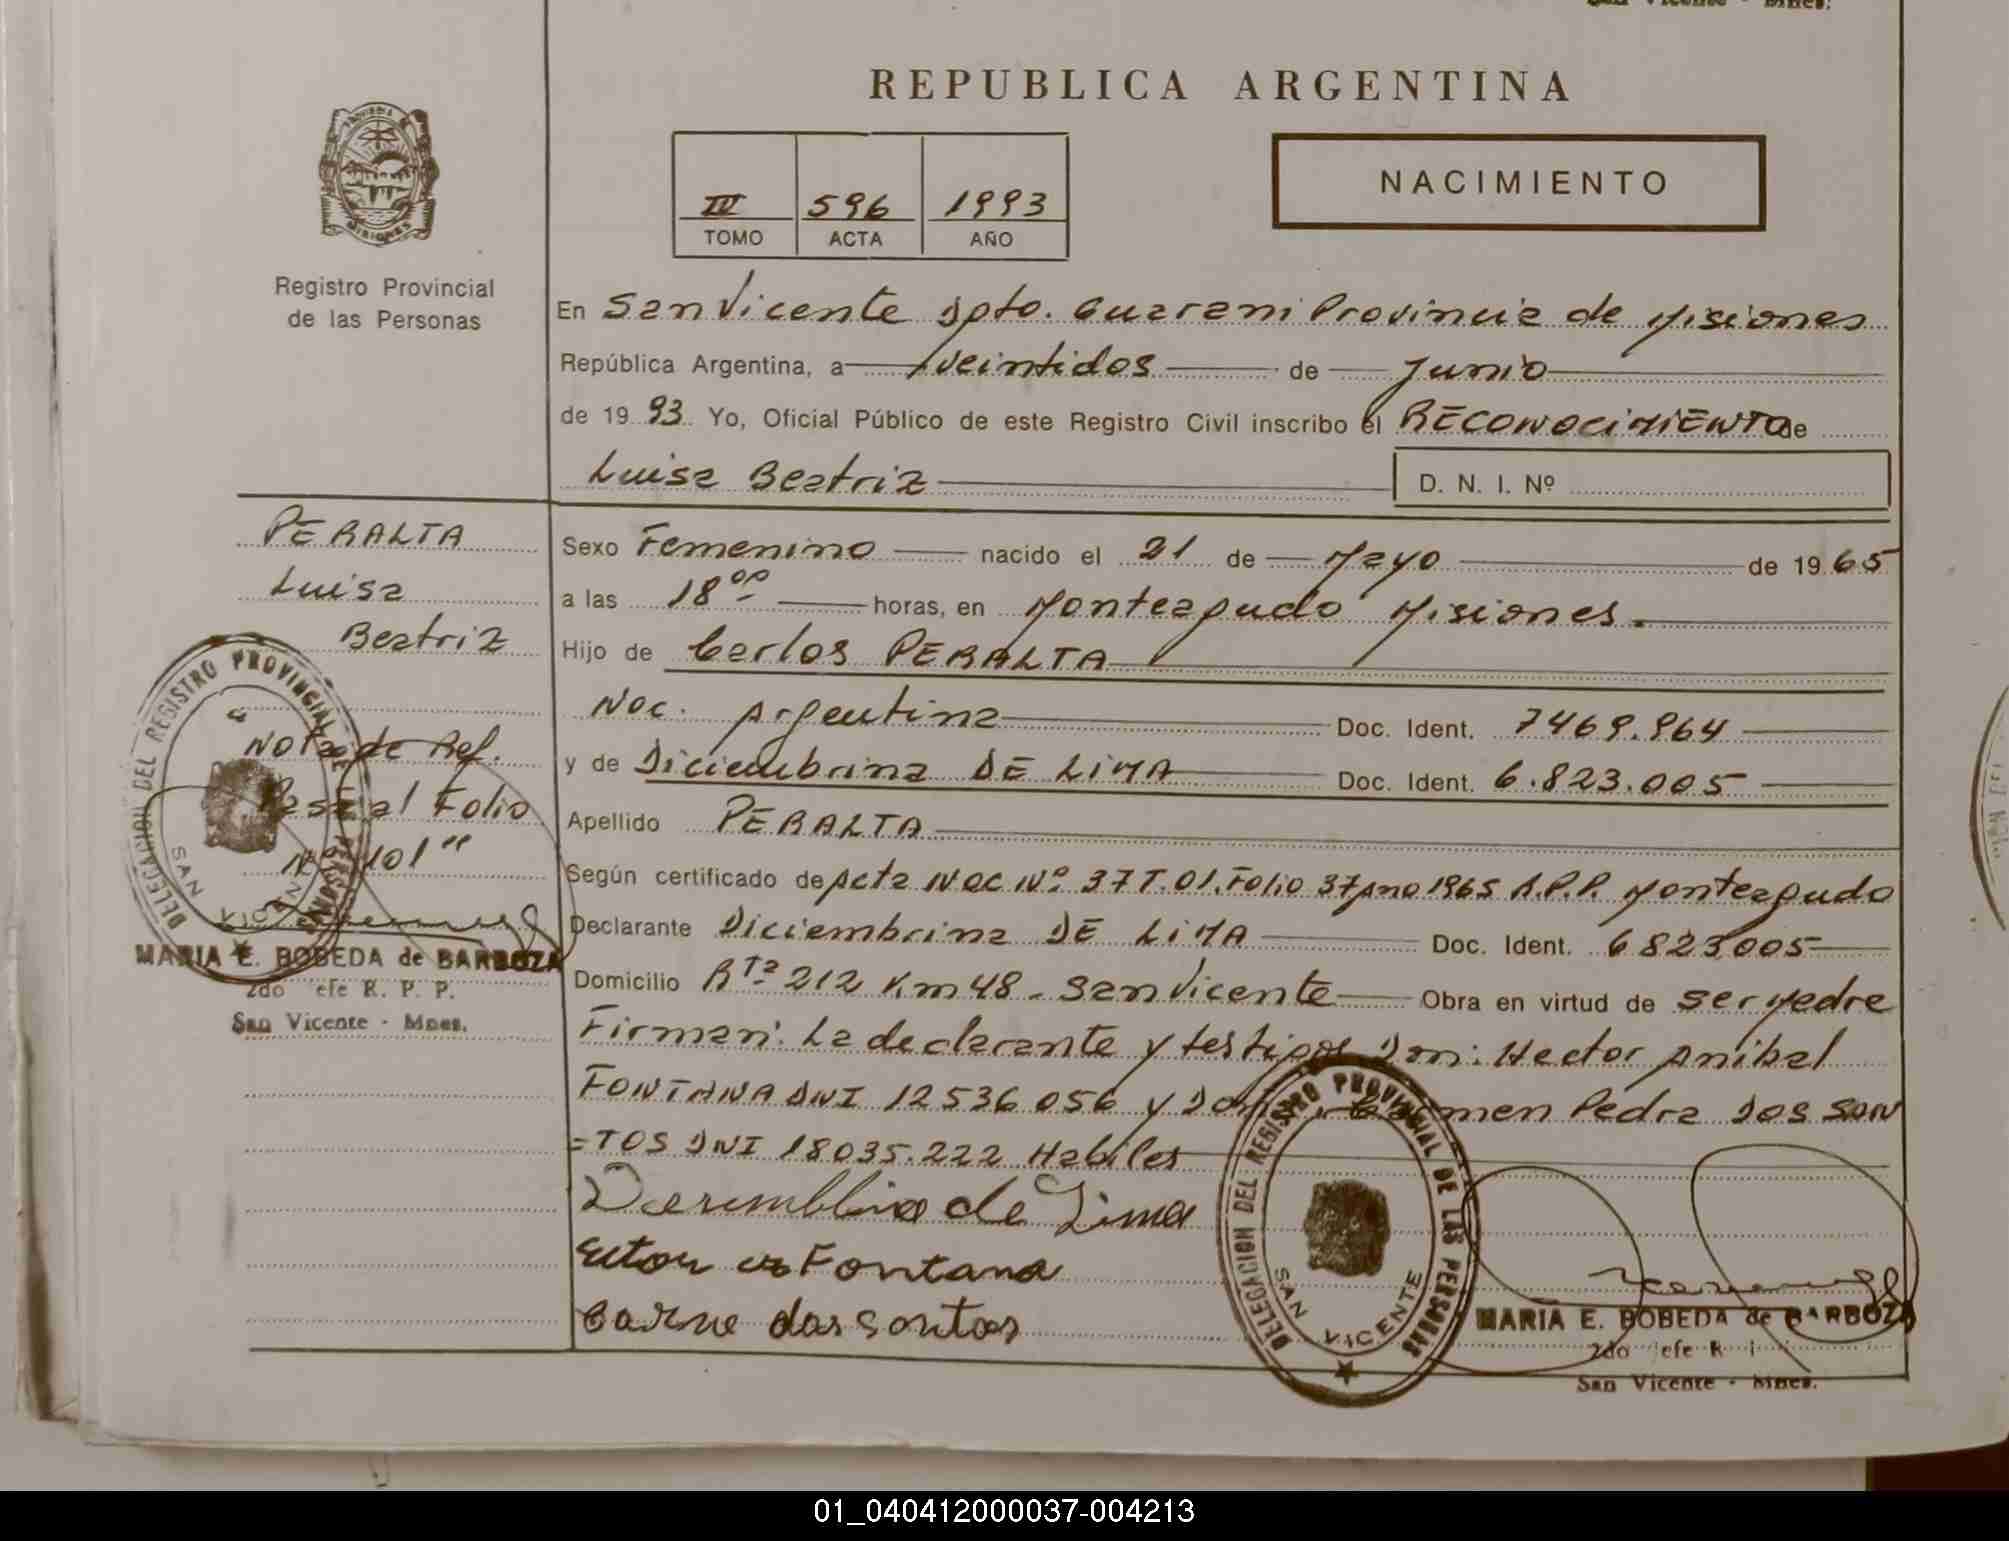 San Vicente - Mnes.
REPUBLICA ARGENTINA
NACIMIENTO
IV 596 1993
TOMO ACTA AÑO
PROVINCIA DE MISIONES
Registro Provincial
de las Personas
En San Vicente Dpto. Guarani Provincia de Misiones
República Argentina, a veintidos de Junio
de 1993 Yo, Oficial Público de este Registro Civil inscribo el RECONOCIMIENTO de
Luisa Beatriz D. N. I. Nº
Sexo Femenino nacido el 21 de Mayo de 1965
a las 18⁰⁰ horas, en Monteagudo Misiones.
Hijo de Carlos PERALTA
Nac. Argentina Doc. Ident. 7469.964
y de Diciembrina DE LIMA Doc. Ident. 6.823.005
Apellido PERALTA
Según certificado de Acta NAC Nº 37 T. 01. Folio 37 Año 1965 R.P.P. Monteagudo
Declarante Diciembrina DE LIMA Doc. Ident. 6823005
Domicilio Rta 212 Km 48 - San Vicente Obra en virtud de ser Madre
Firman: La declarante y testigos Don: Hector Anibal
FONTANA DNI 12536056 y Carmen Pedra DOS SAN
=TOS DNI 18035.222 Habiles
de Lima
Fontana
Carme dos Santos
PERALTA
Luisa
Beatriz
Nota de Ref.
Pasa al Folio
Nº 101"
DELEGACION DEL REGISTRO PROVINCIAL DE LAS PERSONAS
SAN VICENTE
MARIA E. BOBEDA de BARBOZA
2do Jefe R. P. P.
San Vicente - Mnes.
DELEGACION DEL REGISTRO PROVINCIAL DE LAS PERSONAS
SAN VICENTE
MARIA E. BOBEDA de BARBOZA
2do Jefe R
San Vicente - Mnes.
01_040412000037-004213